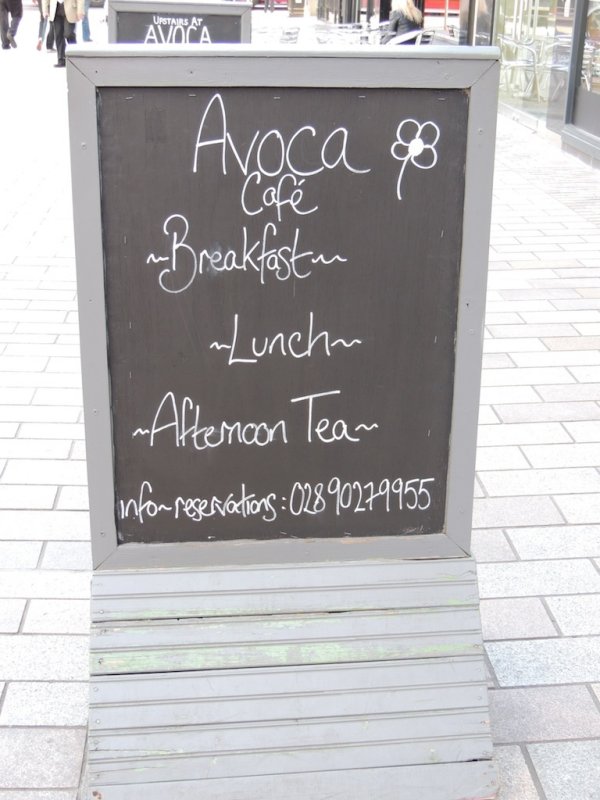 UPSTAIRS AT
AVOCA
Avoca
Café
~Breakfast~
~Lunch~
~Afternoon Tea~
info~reservations: 02890279955